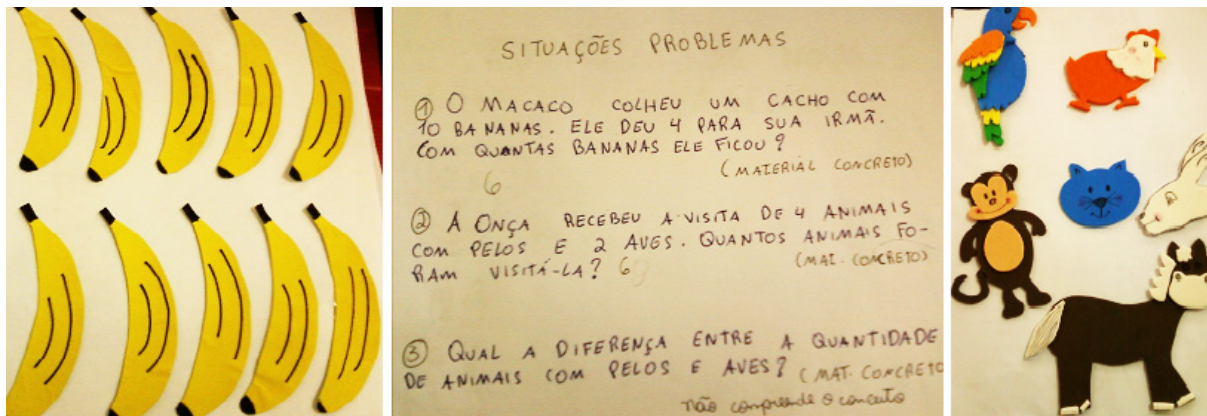 SITUAÇÕES PROBLEMAS
① O MACACO COLHEU UM CACHO COM
10 BANANAS. ELE DEU 4 PARA SUA IRMÃ.
COM QUANTAS BANANAS ELE FICOU?
(MATERIAL CONCRETO)
6
② A ONÇA RECEBEU A VISITA DE 4 ANIMAIS
COM PELOS E 2 AVES. QUANTOS ANIMAIS FO-
RAM VISITÁ-LA? 6
(MAT. CONCRETO)
③ QUAL A DIFERENÇA ENTRE A QUANTIDADE
DE ANIMAIS COM PELOS E AVES? (MAT. CONCRETO
não compreende o conceito